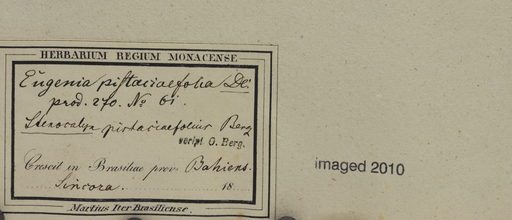 HERBARIUM REGIUM MONACENSE
Eugenia pistaciaefolia DC.
prod. 270. No 61.
Stenocalyx pistaciaefolius Berg
script. O. Berg.
Crescit in Brasiliae prov. Bahiens.
Sincora. 18
Martius Iter Brasiliense.
imaged 2010